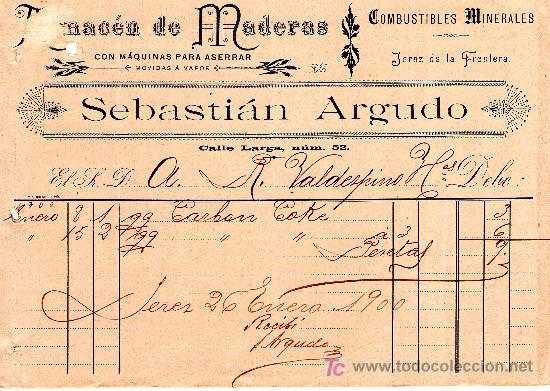 Almacén de Maderas
CON MÁQUINAS PARA ASERRAR
MOVIDAS Á VAPOR
COMBUSTIBLES MINERALES
Jerez de la Frontera
Sebastián Argudo
Calle Larga, núm. 52.
El Sr. D. A. R. Valdespino Hos Debe:
1900
Enero 8 1 qq Carbon Coke 3
" 15 2 qq " " á 3 6
Pesetas 9
Jerez 26 Enero 1900
Recibí
Argudo
todocoleccion
www.todocoleccion.net